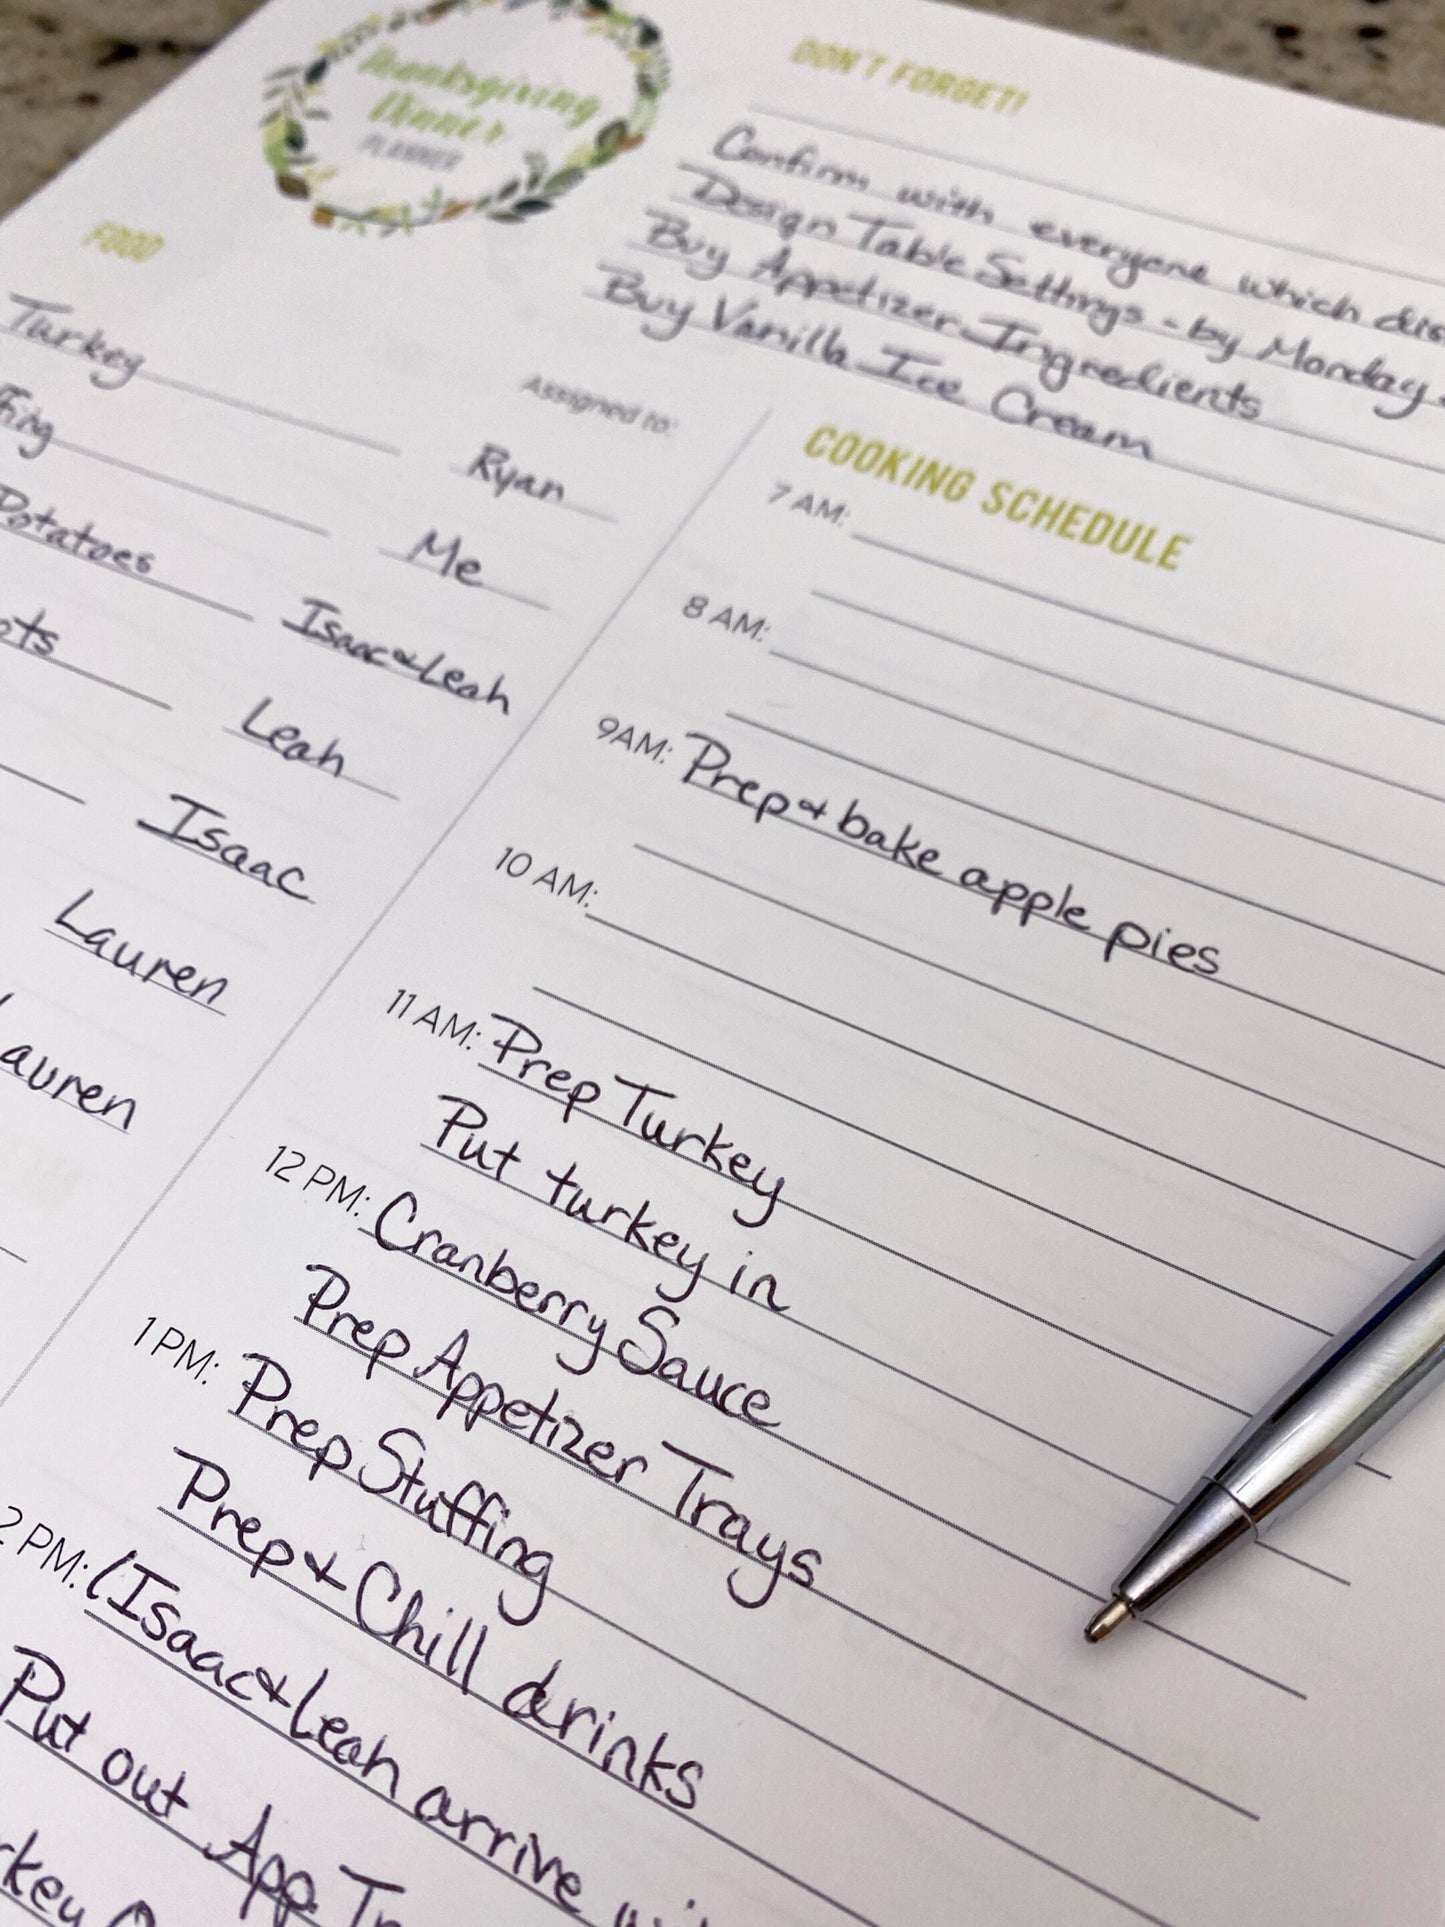 Thanksgiving
Dinner
PLANNER
DON'T FORGET!
Confirm with everyone which
Design Table Settings - by Monday
Buy Appetizer Ingredients
Buy Vanilla Ice Cream
FOOD
Assigned to:
Turkey Ryan
Me
Potatoes Isaac & Leah
Leah
Isaac
Lauren
auren
COOKING SCHEDULE
7 AM:
8 AM:
9AM: Prep & bake apple pies
10 AM:
11 AM: Prep Turkey
Put turkey in
12 PM: Cranberry Sauce
Prep Appetizer Trays
1 PM: Prep Stuffing
Prep & Chill drinks
2 PM: (Isaac & Leah arrive
Put out App. Tr